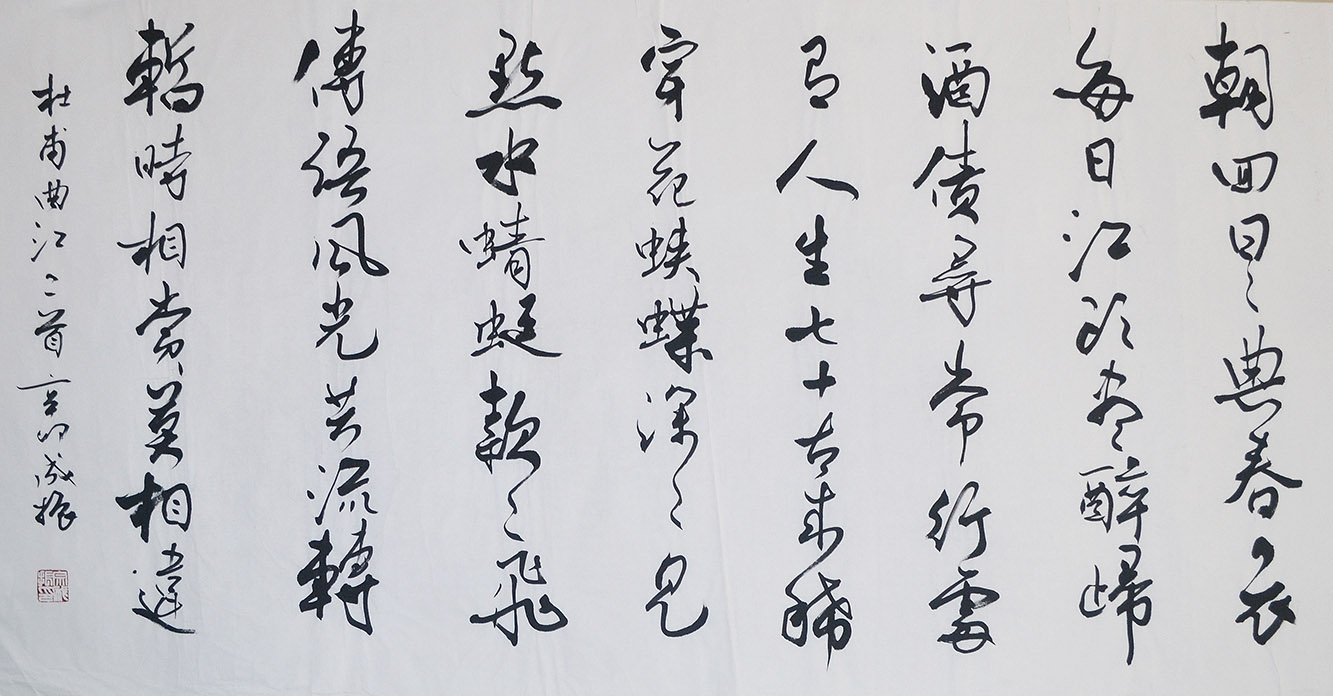 朝回日々典春衣
每日江頭盡醉歸
酒債尋常行處
有人生七十古来稀
穿花蛺蝶深々見
點水蜻蜓款々飛
傳語風光共流轉
暫時相賞莫相違
杜甫曲江二首 辛卯成振